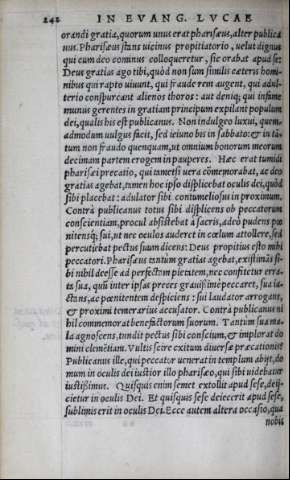 242 IN EVANG. LVCAE
orandi gratia, quorum unus erat pharisæus, alter publica
nus. Pharisæus stans uicinus propitiatorio, uelut dignus
qui cum deo cominus colloqueretur, sic orabat apud se:
Deus gratias ago tibi, quòd non sum similis cæteris homi-
nibus qui rapto uiuunt, qui fraude rem augent, qui adul-
terio conspurcant alienos thoros: aut deniq; qui infame
munus gerentes in gratiam principum expilant populum
dei, qualis hic est publicanus. Non indulgeo luxui, quem-
admodum uulgus facit, sed ieiuno bis in sabbato: & in tã-
tum non fraudo quenquam, ut omnium bonorum meorum
decimam partem erogem in pauperes. Hæc erat tumidi
pharisæi precatio, qui tametsi uera cõmemorabat, ac deo
gratias agebat, tamen hoc ipso displicebat oculis dei, quòd
sibi placebat: adulator sibi contumeliosus in proximum.
Contrà publicanus totus sibi displicens ob peccatorum
conscientiam, procul absistebat à sacris, adeò pudens pœ
nitensq; sui, ut nec oculos auderet in cœlum attollere, sed
percutiebat pectus suum dicens: Deus propitius esto mihi
peccatori. Pharisæus tantum gratias agebat, existimãs si-
bi nihil deesse ad perfectam pietatem, nec confitetur erra-
ta sua, quũ inter ipsas preces grauissimè peccaret, sua ia-
ctans, ac pœnitentem despiciens: sui laudator arrogans,
& proximi temerarius accusator. Contrà publicanus ni
hil commemorat benefactorum suorum. Tantùm sua ma-
la agnoscens, tundit pectus sibi conscium, & implorat do
mini clemẽtiam. Vultis scire exitum diuersæ precationis?
Publicanus ille, qui peccator uenerat in templum abijt, do
mum in oculis dei iustior illo pharisæo, qui sibi uidebatur
iustissimus. Quisquis enim semet extollit apud sese, deij-
cietur in oculis Dei. Et quisquis sese deiecerit apud sese,
sublimis erit in oculis Dei. Ecce autem altera occasio, qua
nobis